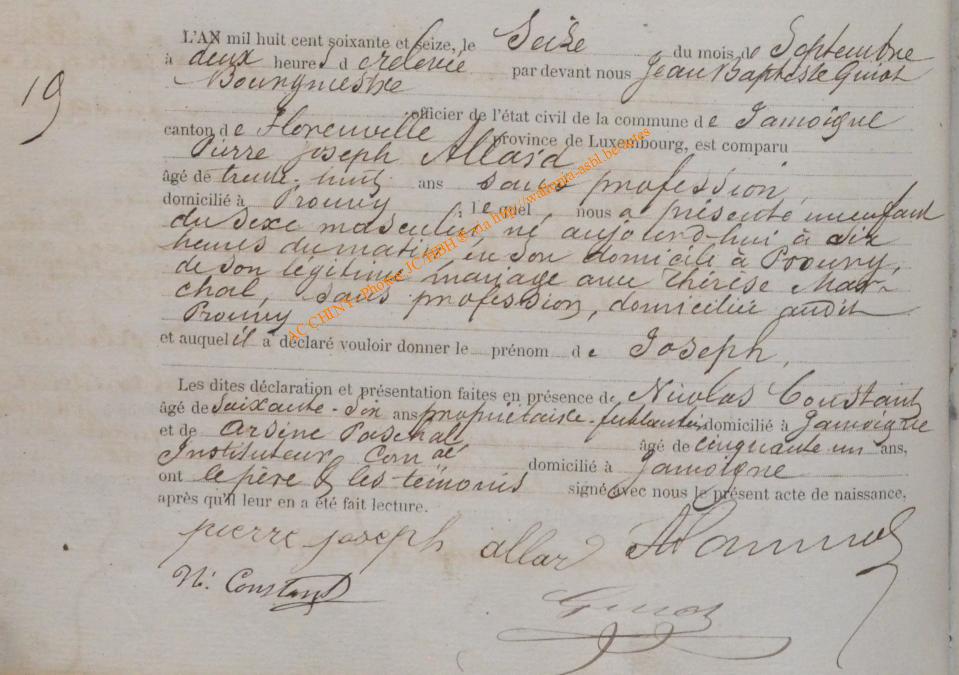 19
L'AN mil huit cent soixante et seize, le Seize du mois de Septembre
à deux heures d e relevée par devant nous Jean Baptiste Guiot
Bourgmestre
officier de l'état civil de la commune de Jamoigne
canton de Florenville province de Luxembourg, est comparu
Pierre Joseph Allard
âgé de trente-huit ans sans profession,
domicilié à Prouvy ; lequel nous a présenté un enfant
du sexe masculin, né aujourd-hui à dix
heures du matin, en son domicile à Prouvy,
de son légitime mariage avec Thérèse Mar-
chal, sans profession, domiciliée audit
Prouvy
et auquel il a déclaré vouloir donner le prénom de Joseph,
Les dites déclaration et présentation faites en présence de Nicolas Constant
âgé de Soixante-Six ans propriétaire domicilié à Jamoigne
et de Arsène âgé de cinquante un ans,
Instituteur Com al domicilié à Jamoigne
ont le père & les témoins signé avec nous le présent acte de naissance,
après qu'il leur en a été fait lecture.
pierre joseph allard
N: Constant
Guiot
AC CHINY - Photos JC/HBH & via http://wallonia-asbl.be/actes